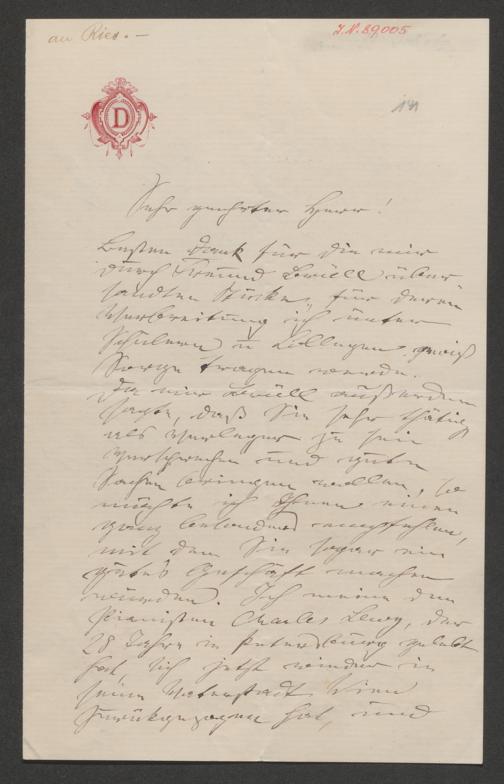 an Ries. –
J.N. 89,005
191
D
Sehr geehrter Herr!
Besten Dank für die mir
durch Freund Brüll über-
sandten Stücke, für deren
Verbreitung ich unter
Schülern u Collegen gewiß
Sorge tragen werde.
Da mir Brüll außerdem
sagte, daß Sie sehr thätig
als Verleger zu sein
versprechen und gute
Sachen bringen wollen, so
möchte ich Ihnen einen
ganz besonders empfehlen,
mit dem Sie sogar ein
gutes Geschäft machen
würden. Ich meine den
Pianisten Charles Lewy, der
28 Jahre in Petersburg gelebt
hat, sich jetzt wieder in
seine Vaterstadt Wien
zurückgezogen hat, und